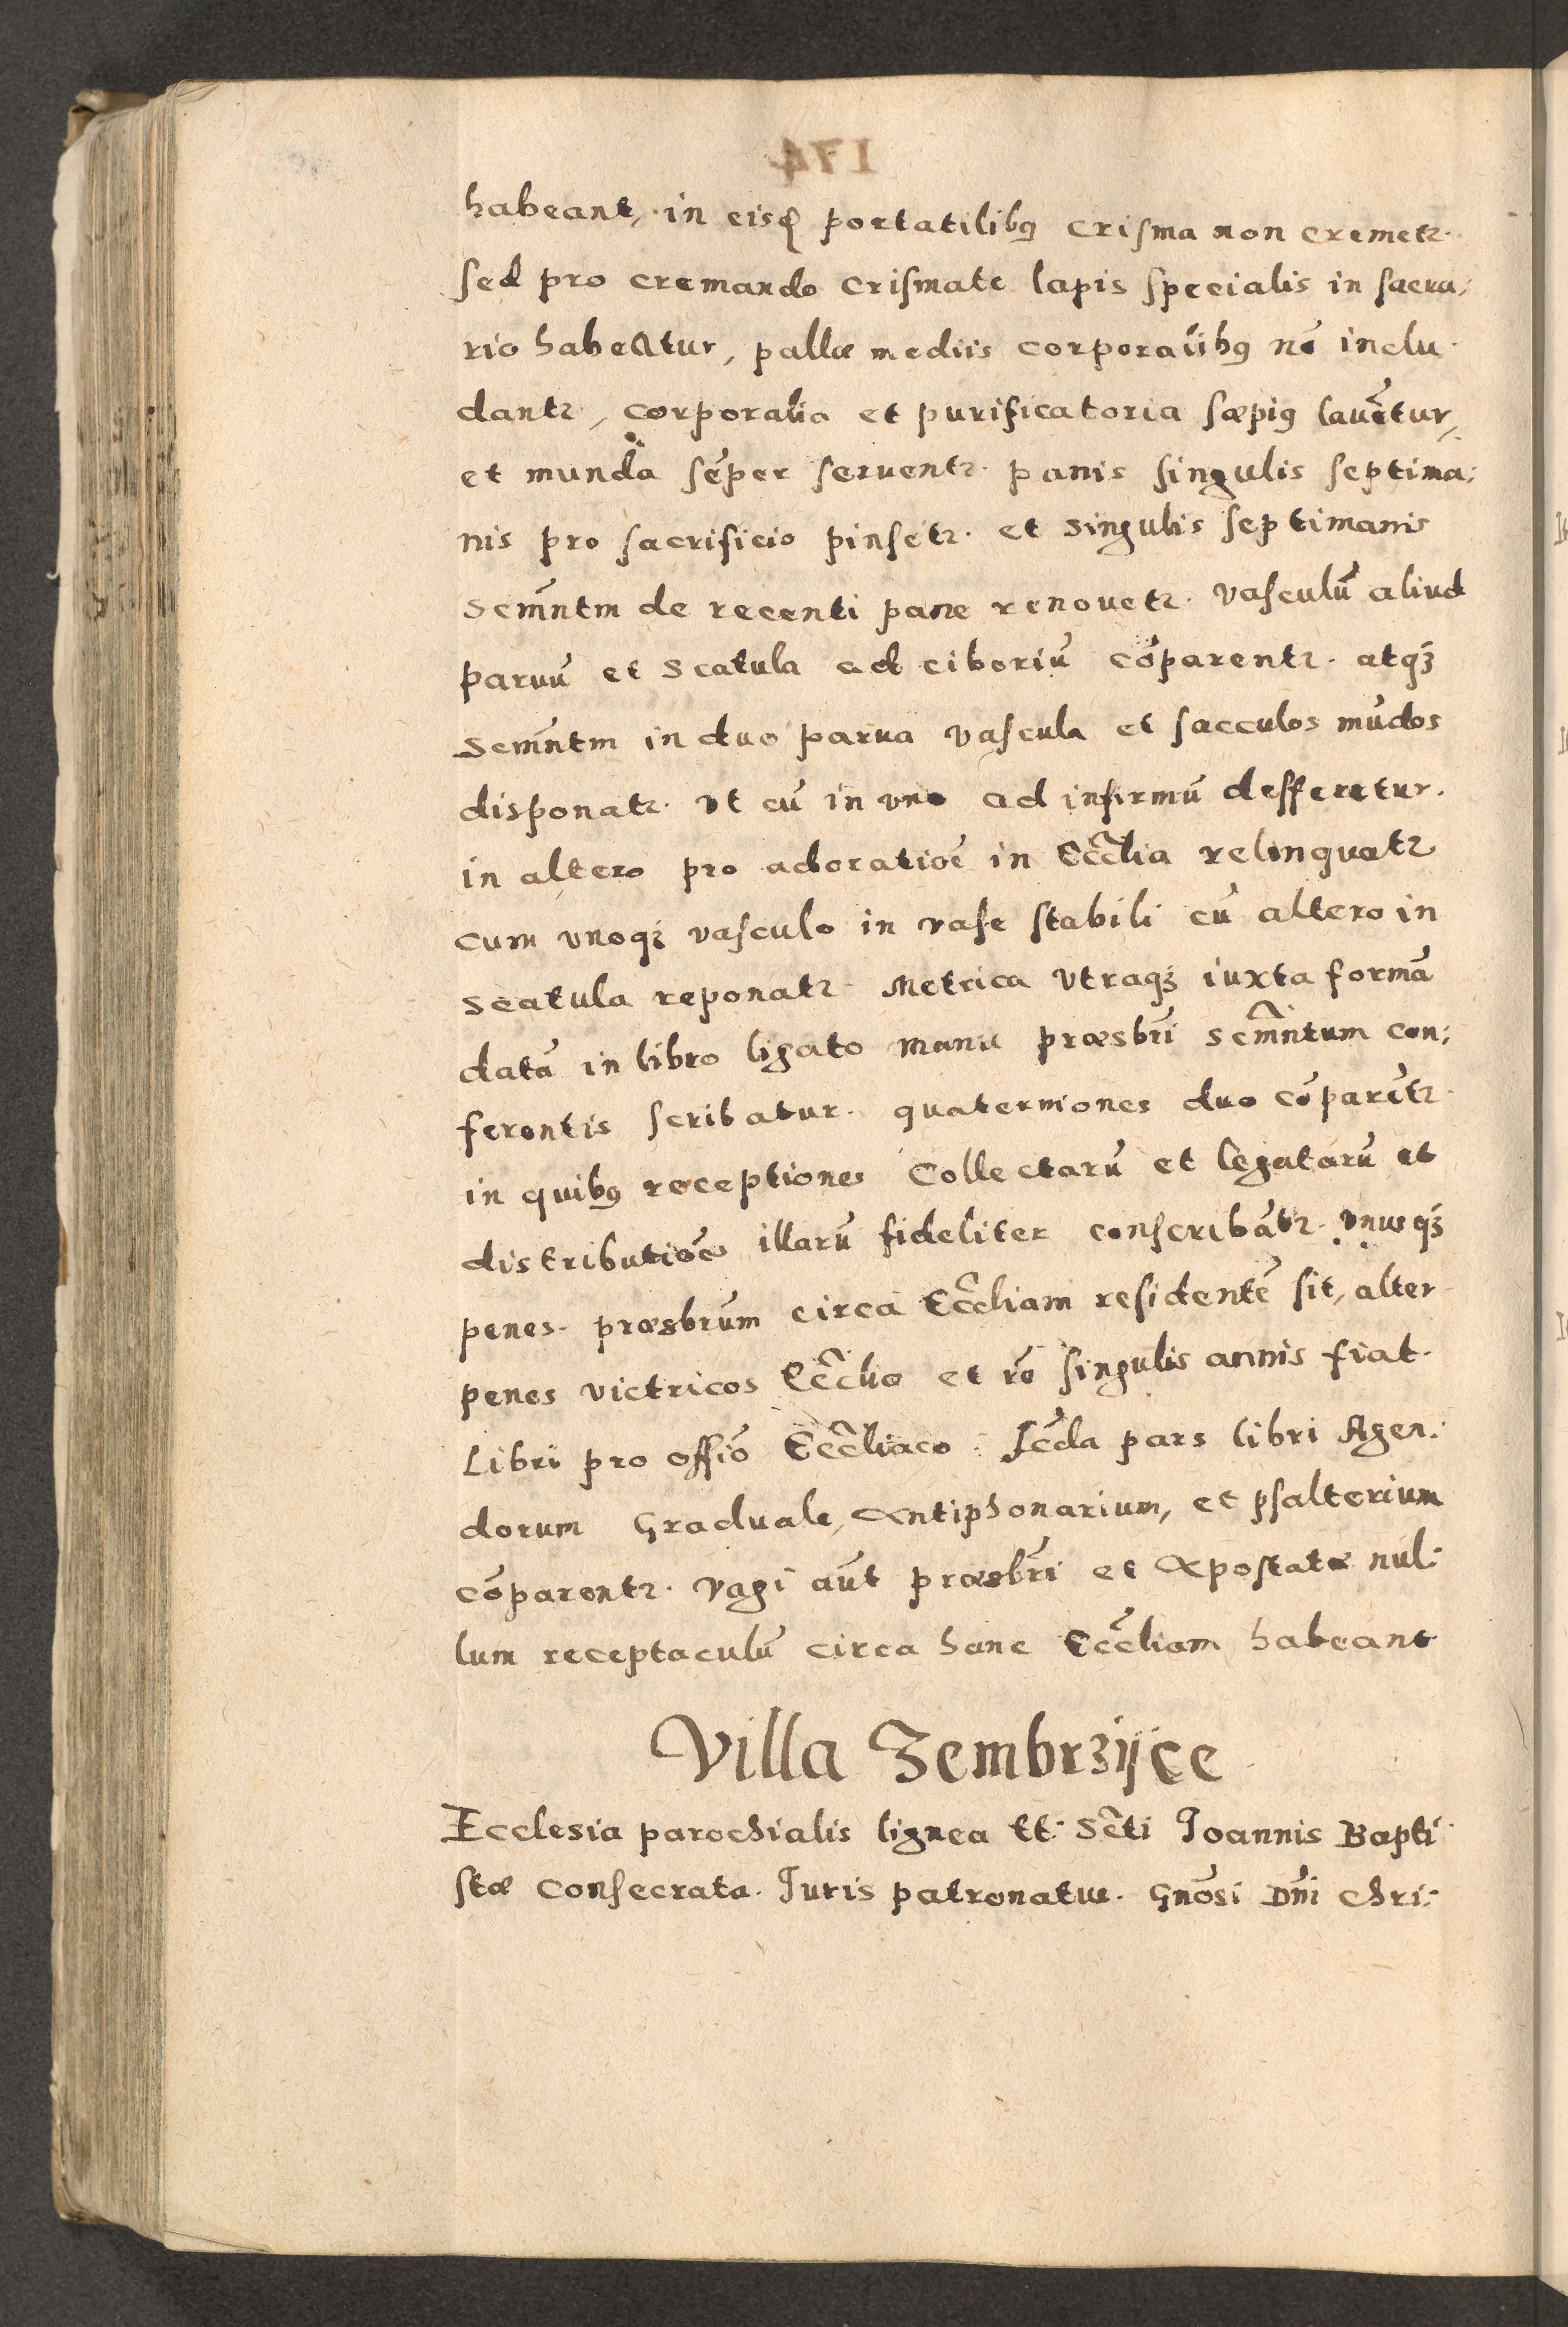 174
habeant, in eisq portatilibꝰ crisma non cremetꝛ.
sed pro cremando crismate lapis specialis in sacra:
rio habeatur, pallæ mediis corporalibꝰ nō inclu
dantꝛ, corporalia et purificatoria sæpiꝰ lauētur,
et munda sēper seruentꝛ. panis singulis septima:
nis pro sacrificio pinsetꝛ. et singulis septimanis
Scm̄ntm de recenti pane renouetꝛ. vasculū aliud
paruū et Scatula ad ciboriū cōparentꝛ. atqꝫ
Scm̄ntm in duo parua vascula et sacculos mūdos
disponatꝛ. vt cū in vno ad infirmū defferetur.
in altero pro adoratiōe in Eccl̄ia relinquatꝛ
cum vnoqꝫ vasculo in vase stabili cū altero in
scatula reponatꝛ. Metrica vtraqꝫ iuxta formā
datā in libro ligato manu præsbr̄i Scm̄ntum con:
ferentis scribatur. quaterniones duo cōparētꝛ.
in quibꝰ receptiones Collectarū et legatarū et
distributiōes illarū fideliter conscribātꝛ. vnusqꝫ
penes præsbr̄um circa Eccl̄iam residentē sit, alter
penes victricos Eccl̄iæ et rō singulis annis fiat.
Libri pro offiō Eccl̄iaco. Scd̄a pars libri Agen:
dorum Graduale, Antiphonarium, et psalterium
cōparentꝛ. Vagi aūt præsbr̄i et Apostatæ nul:
lum receptaculū circa hanc Eccl̄iam habeant
Villa Zembrzijce
Ecclesia parochialis lignea tt: Sc̄ti Joannis Bapti
stæ Consecrata. Juris patronatus. Gn̄osi Dn̄i Chri: